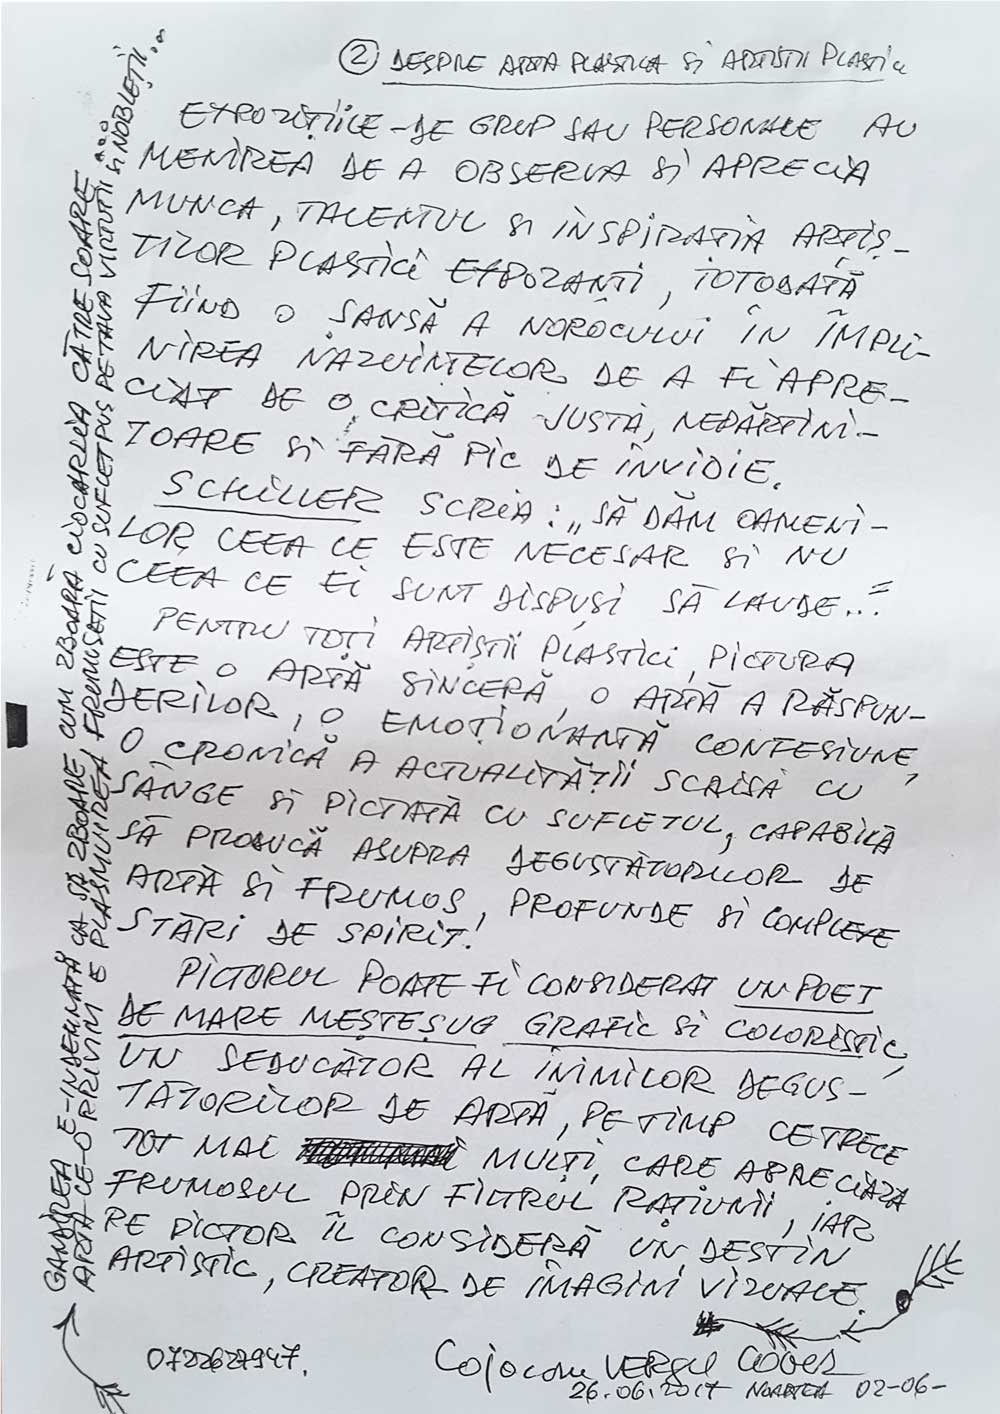 ② DESPRE ARTA PLASTICA SI ARTISTII PLASTICI
EXPOZIȚIILE - DE GRUP SAU PERSONALE AU
MENIREA DE A OBSERVA SI APRECIA
MUNCA, TALENTUL SI INSPIRATIA ARTIȘ-
TILOR PLASTICI EXPOZANTI, TOTODATĂ
FIIND O ȘANSĂ A NOROCULUI ÎN ÎMPLI-
NIREA NAZUINTELOR DE A FI APRE-
CIAT DE O CRITICĂ JUSTĂ, NEPĂRTINI-
TOARE SI FĂRĂ PIC DE INVIDIE.
SCHILLER SCRIA: „SĂ DĂM OAMENI-
LOR CEEA CE ESTE NECESAR SI NU
CEEA CE EI SUNT DISPUȘI SĂ LAUDE..."
PENTRU TOȚI ARTIȘTII PLASTICI, PICTURA
ESTE O ARTĂ SINCERĂ, O ARTĂ A RĂSPUN-
DERILOR, O EMOȚIONANTĂ CONFESIUNE,
O CRONICĂ A ACTUALITĂȚII SCRISĂ CU
SÂNGE SI PICTATĂ CU SUFLETUL, CAPABILĂ
SĂ PRODUCĂ ASUPRA DEGUSTĂTORILOR DE
ARTĂ SI FRUMOS, PROFUNDE SI COMPLEXE
STĂRI DE SPIRIT!
PICTORUL POATE FI CONSIDERAT UN POET
DE MARE MEȘTEȘUG GRAFIC SI COLORISTIC,
UN SEDUCĂTOR AL INIMILOR DEGUS-
TĂTORILOR DE ARTĂ, PE TIMP CE TRECE
TOT MAI MULȚI, CARE APRECIAZA
FRUMOSUL PRIN FILTRUL RAȚIUNII, IAR
PE PICTOR ÎL CONSIDERĂ UN DESTIN
ARTISTIC, CREATOR DE IMAGINI VIZUALE.
0722627947.
Cojocaru VERGIL
26.06.2017 NOAPTEA 02-06-
GANDIREA E-INDEMNATĂ CA SĂ ZBOARE CUM ZBOARĂ CIOCARLIA CĂTRE SOARE...
ARTA CE-O PRIVIM E PLASMUIREA FRUMUSETII CU SUFLET PUS PE TAVA VIRTUTII SI NOBLEȚII...